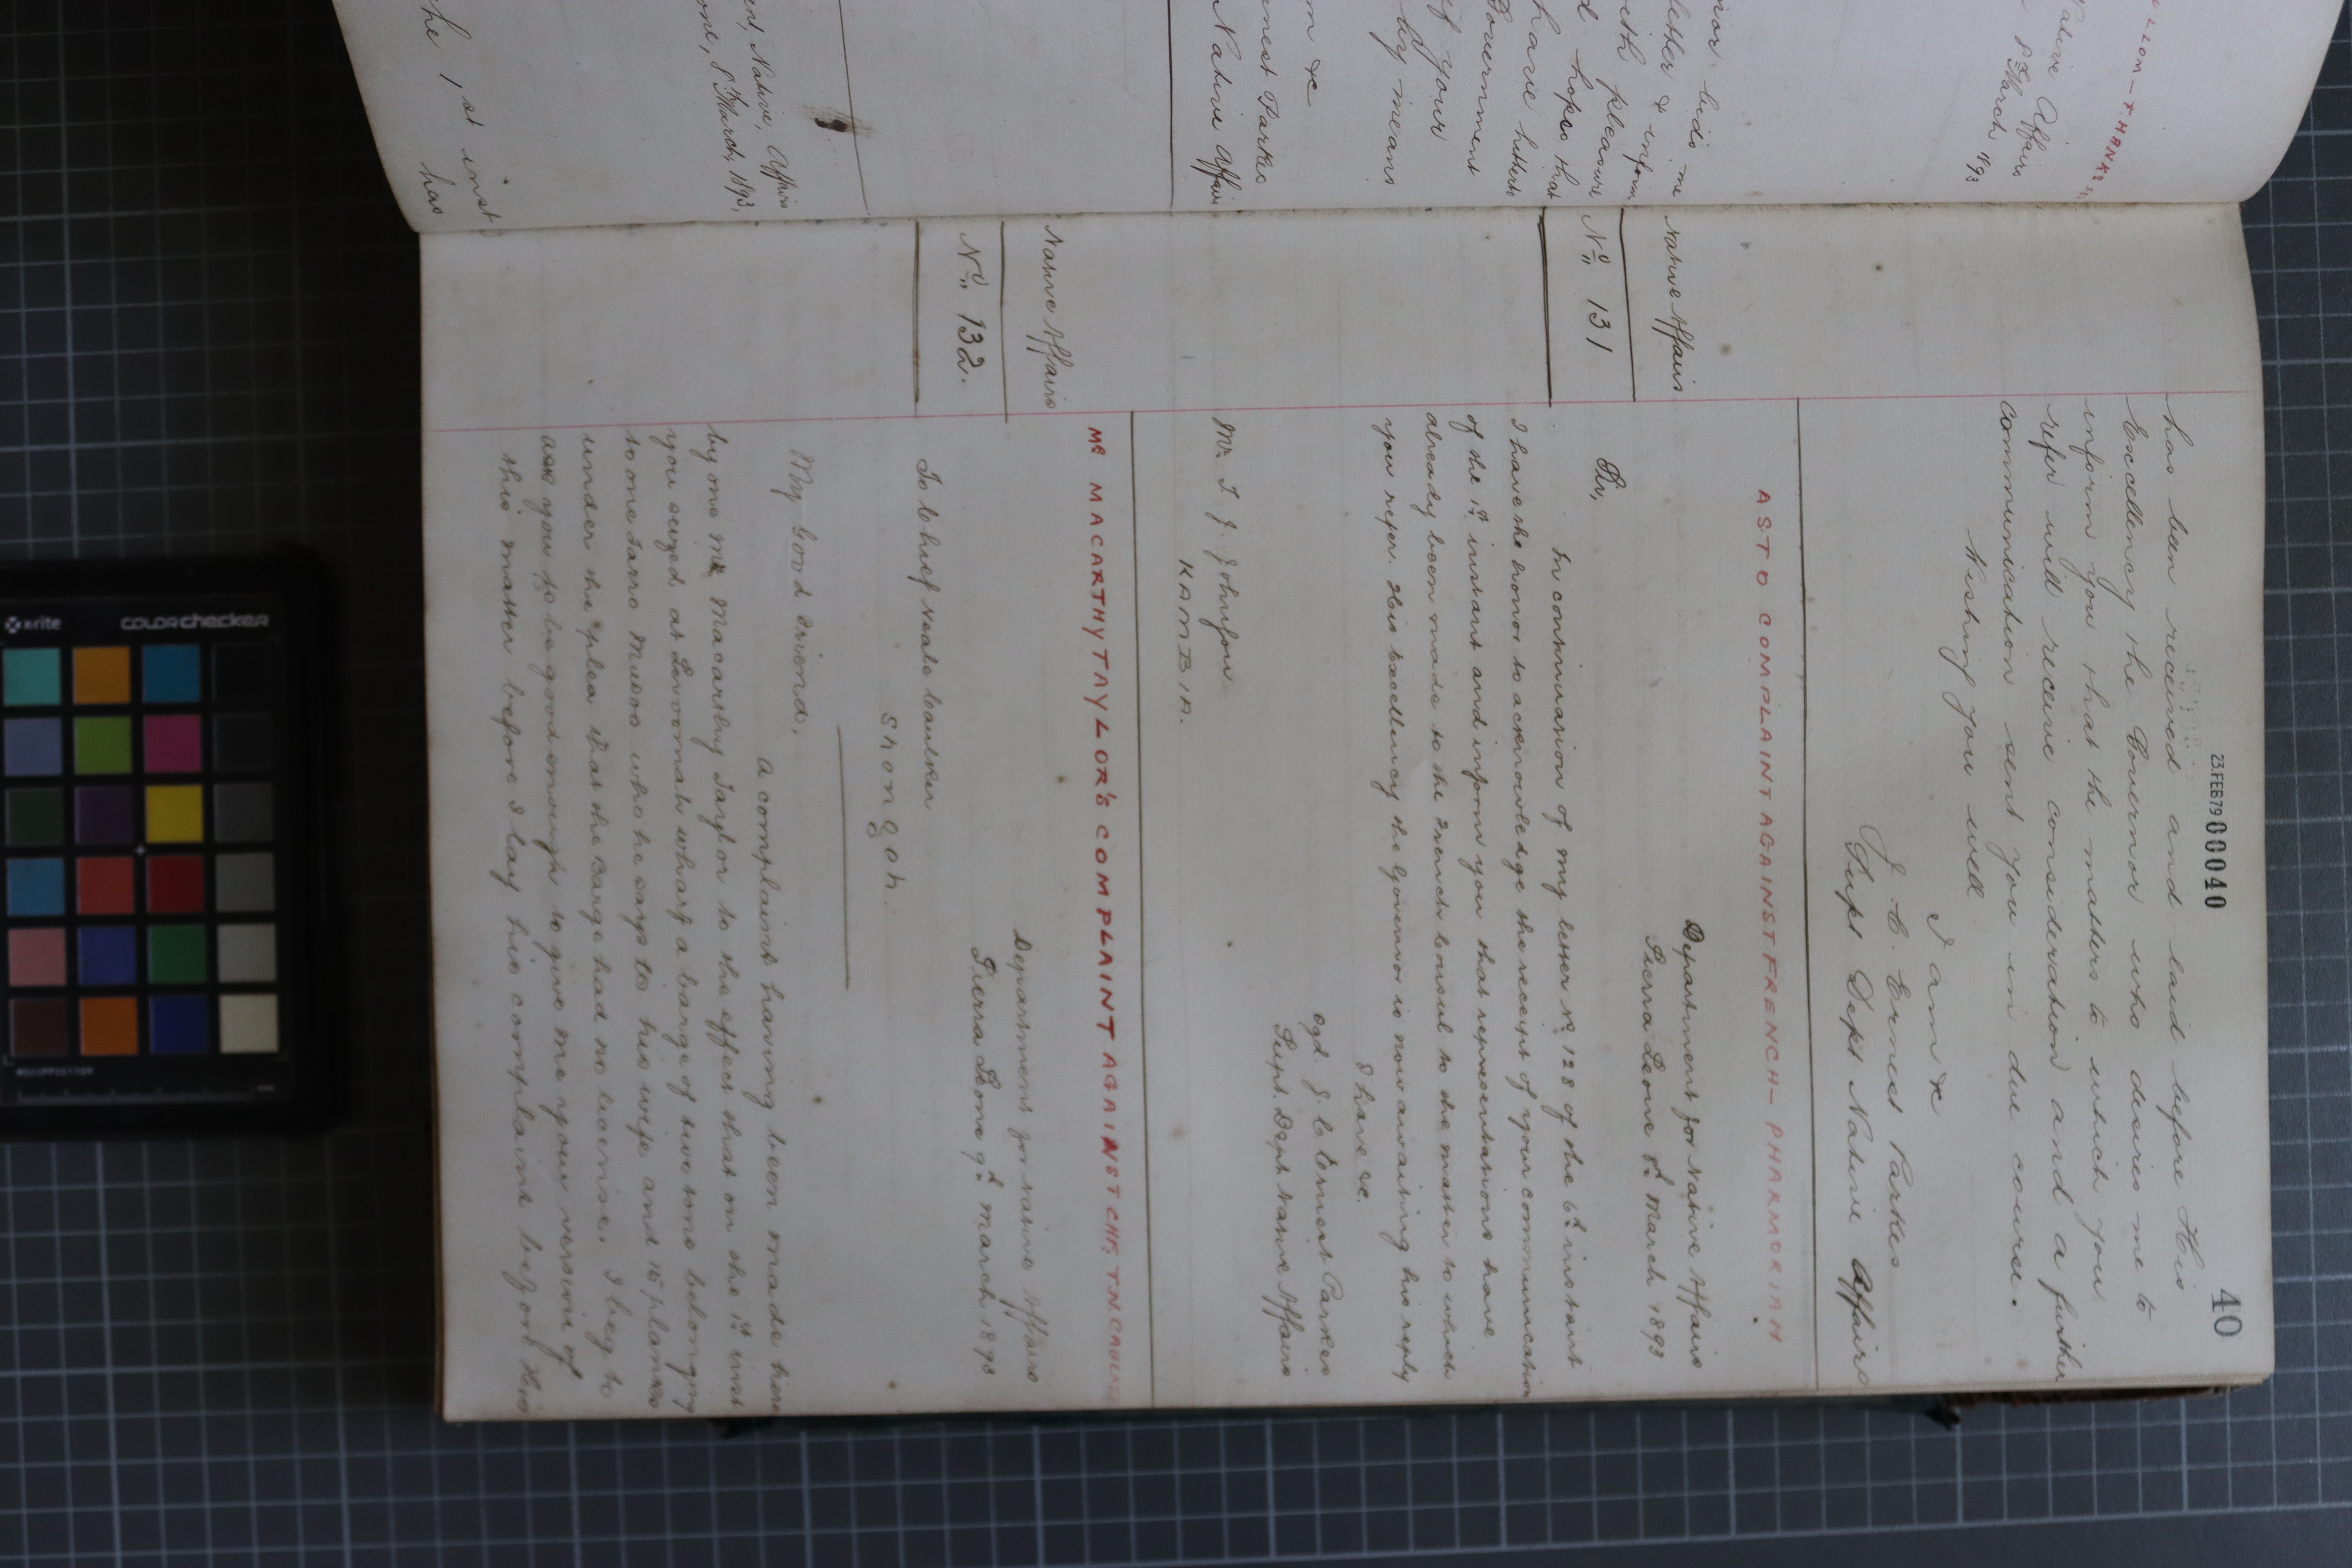 23.FEB79 00040
40
has been received and laid before His
Excellency the Governor who desires me to
inform you that the matters to which you
refer will receive consideration and a further
communication sent you in due course.
Wishing you well
I am &c
J. C. Ernest Parkes
Supt Dept Native Affairs
AS TO COMPLAINT AGAINST FRENCH - PHARMORIAH
Native Affairs
No 131
Department for Native Affairs
Sierra Leone 8th March 1893
Sir,
In continuation of my letter No 128 of the 6th instant
I have the honor to acknowledge the receipt of your communication
of the 1st instant and inform you that representations have
already been made to the French Consul to the matter to which
you refer. His Excellency the Governor is now awaiting his reply
I have &c.
sgd. J. C. Ernest Parkes
Supt. Dept Native Affairs
Mr. T. J. Johnson
KAMBIA.
MR MACARTHY TAYLOR'S COMPLAINT AGAINST CHF. T.N. CAULKER
Native Affairs
No 132.
Department for Native Affairs
Sierra Leone 9th March 1893
To Chief Neale Caulker
Shongoh.
My Good Friend,
A complaint having been made here
by one Mr Macarthy Taylor to the effect that on the 1st inst
you seized at wharf a barge of two tons belonging
to one Sarro Musoo who he says to his wife and 15 planks
under the plea that the barge had no license. I beg to
ask you to be good enough to give me your version of
this matter before I lay his complaint before His
N Native Affairs
nest Parkes
m &c
by means
f your
Government
have hitherto
d hopes that
with pleasure
letter & inform
nor bids me
Native Affairs
8th March 1893
ent, Native, Affairs
one, 8th March, 1893,
he 1st inst
has